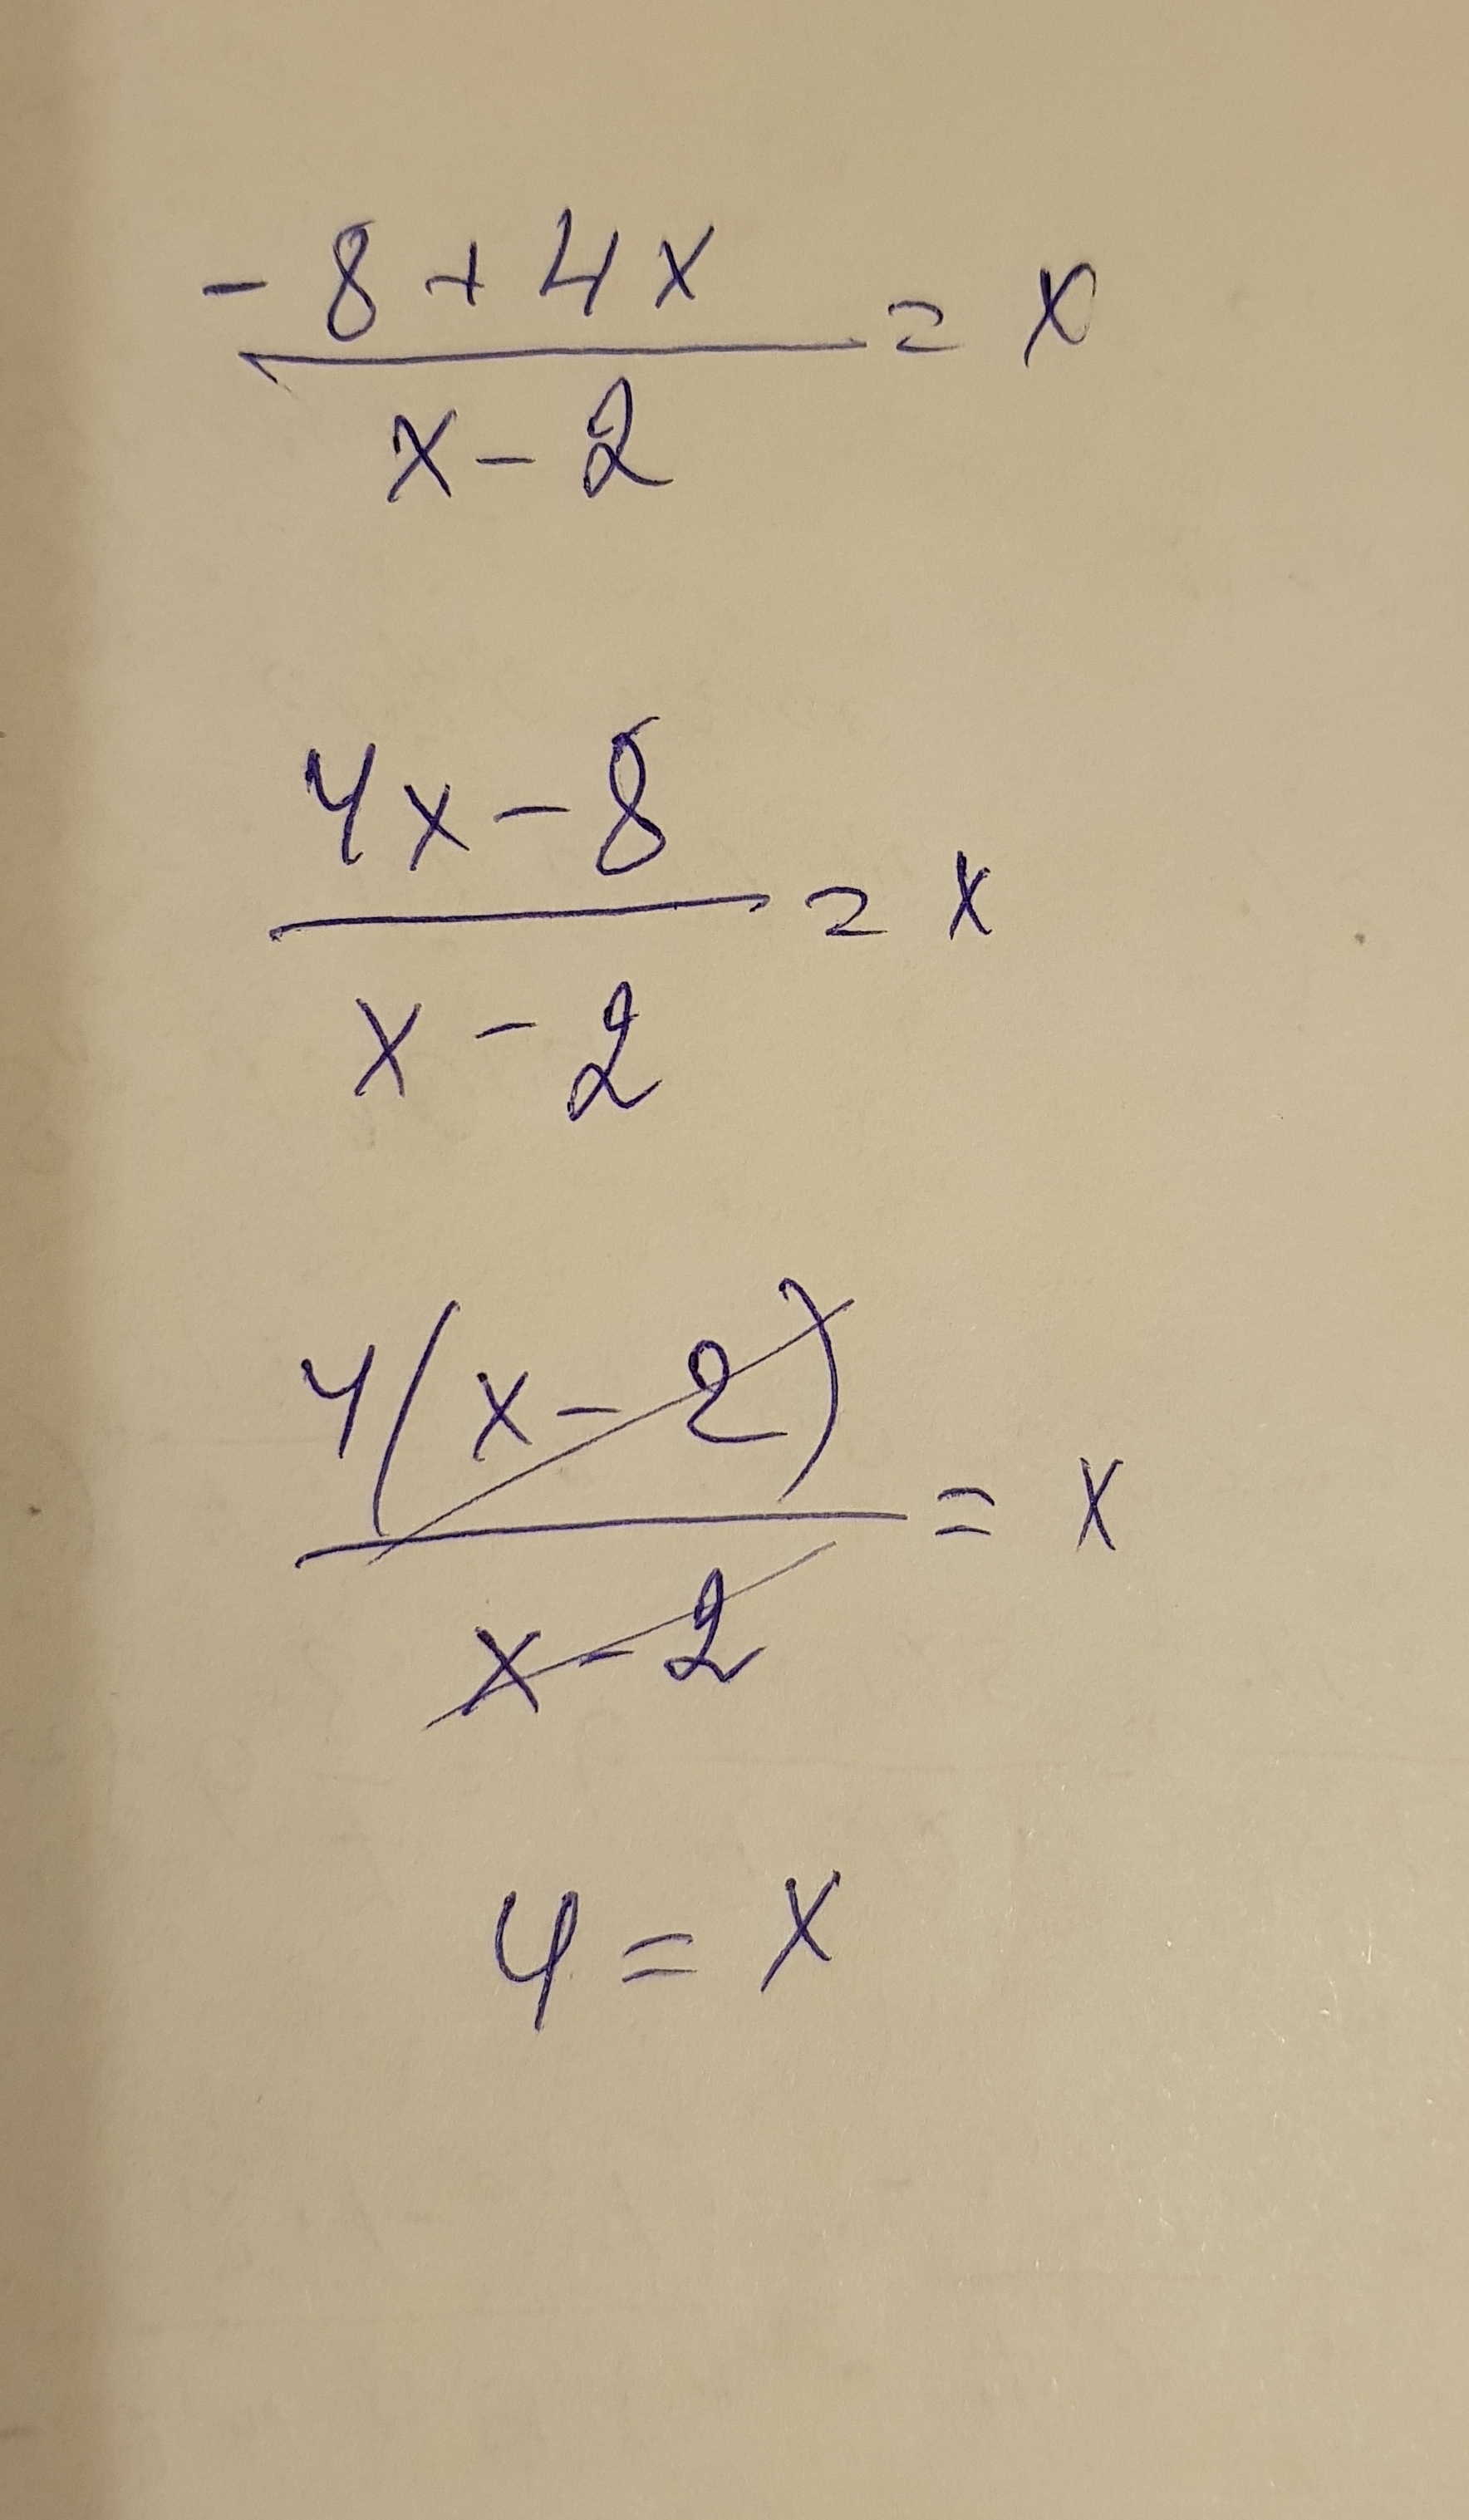 -8+4x
x-2
= x
4x-8
x-2
= x
4(x-2)
x-2
= x
4 = x